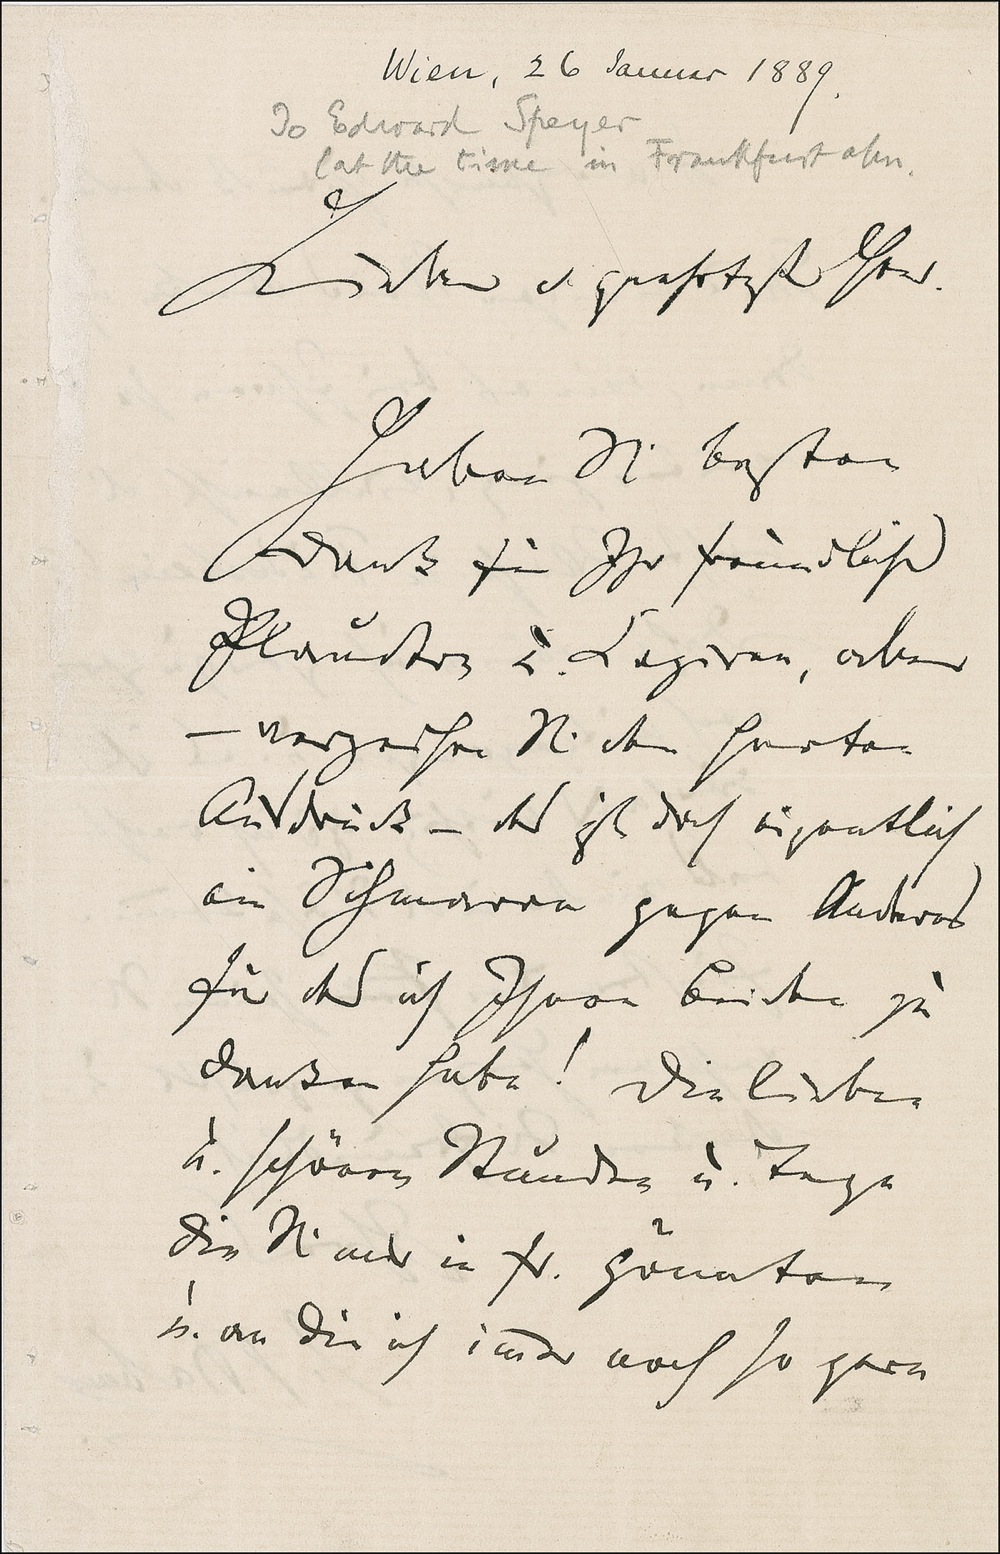 Wien, 26 Januar 1889.
To Edward Speyer
(at the time in Frankfurt a/m.
Lieber u. geehrtester Herr.
Haben Sie besten
Dank für Ihr freundliches
Plaudern u. Copiren, aber
— verzeihen Sie den harten
Ausdruck — das ist doch eigentlich
ein Schmarren gegen Anderes
für das ich Ihnen Beiden zu
danken habe! Die lieben
u. schönen Stunden u. Tage
die Sie mir in Fr. gönnten
u. an die ich immer noch so gern